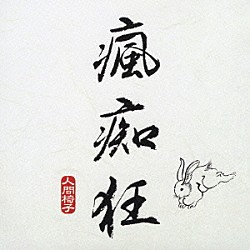 瘋
痴
狂
人間椅子